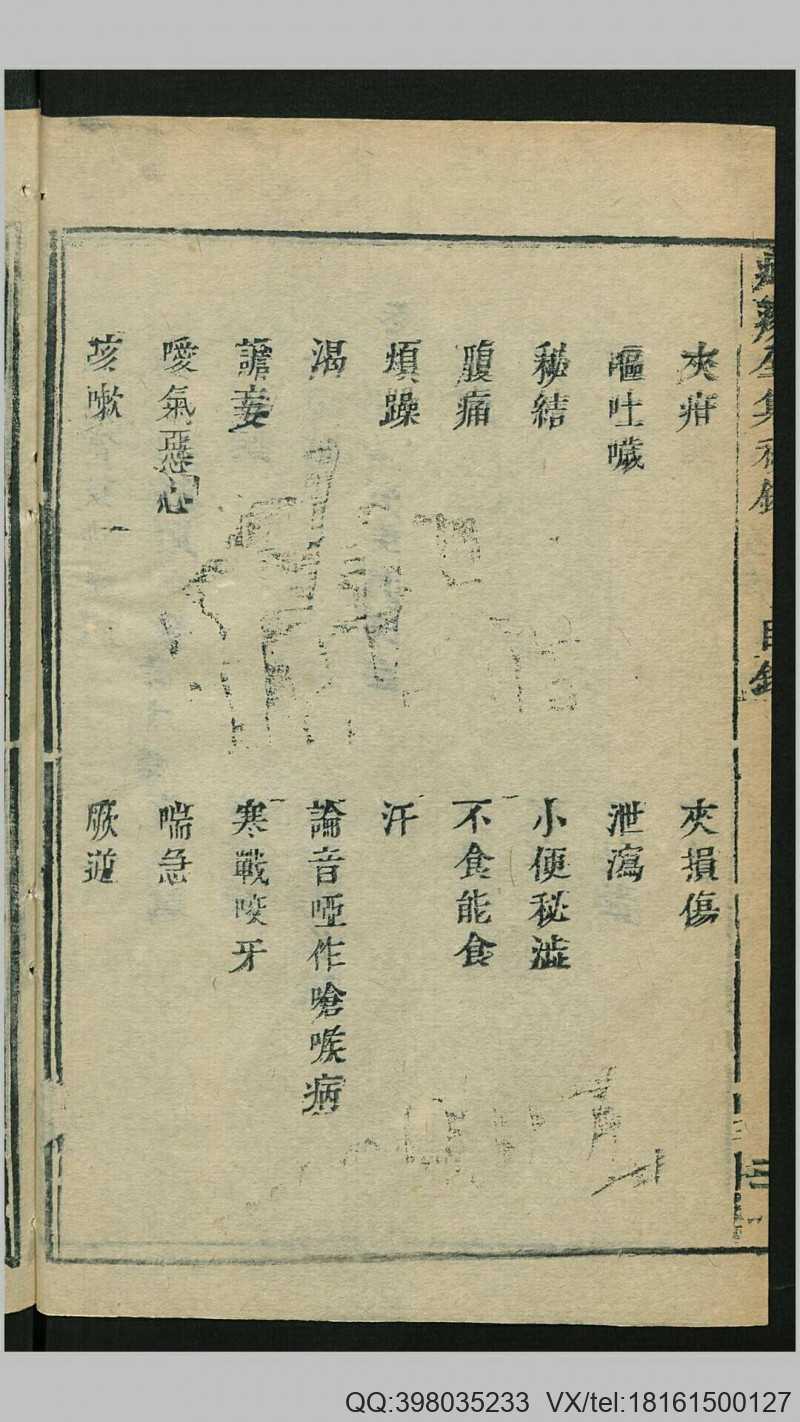 夾疳 夾損傷
嘔吐噦 泄瀉
秘結 小便秘澁
腹痛 不食能食
煩躁 汗
渴 論音啞作嗆喉病
譫妄 寒戰咬牙
噯氣惡心 喘急
咳嗽 厥逆
QQ:398035233 VX/tel:18161500127